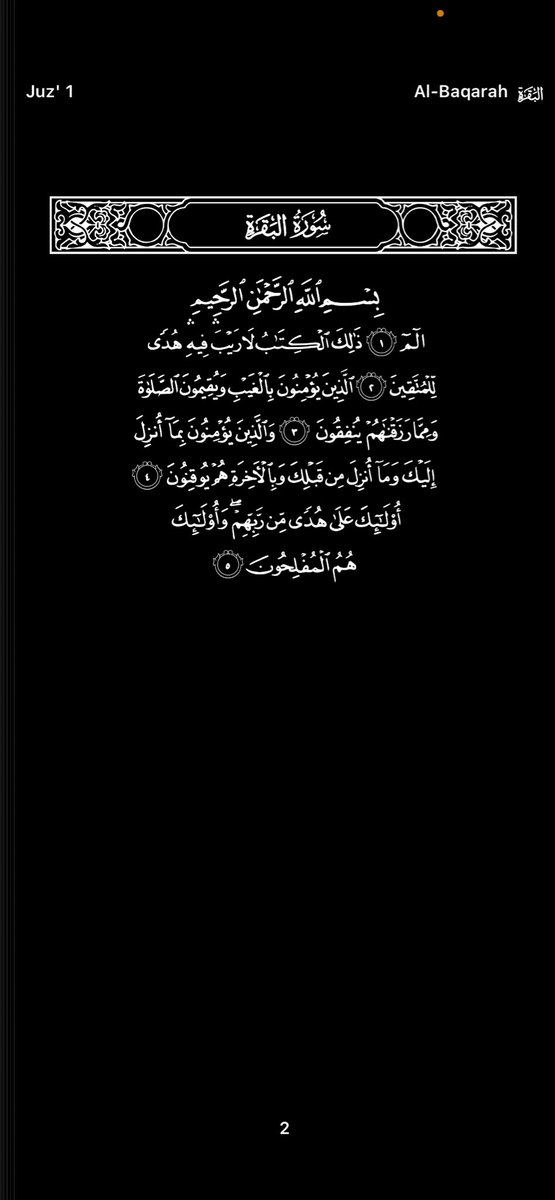 Juz' 1
Al-Baqarah البقرة
سُورَةُ البَقَرَةِ
بِسْمِ ٱللَّهِ ٱلرَّحْمَٰنِ ٱلرَّحِيمِ
الٓمٓ ١ ذَٰلِكَ ٱلْكِتَٰبُ لَا رَيْبَ ۛ فِيهِ ۛ هُدًى
لِّلْمُتَّقِينَ ٢ ٱلَّذِينَ يُؤْمِنُونَ بِٱلْغَيْبِ وَيُقِيمُونَ ٱلصَّلَوٰةَ
وَمِمَّا رَزَقْنَٰهُمْ يُنفِقُونَ ٣ وَٱلَّذِينَ يُؤْمِنُونَ بِمَآ أُنزِلَ
إِلَيْكَ وَمَآ أُنزِلَ مِن قَبْلِكَ وَبِٱلْءَاخِرَةِ هُمْ يُوقِنُونَ ٤
أُو۟لَٰٓئِكَ عَلَىٰ هُدًى مِّن رَّبِّهِمْ ۖ وَأُو۟لَٰٓئِكَ
هُمُ ٱلْمُفْلِحُونَ ٥
2